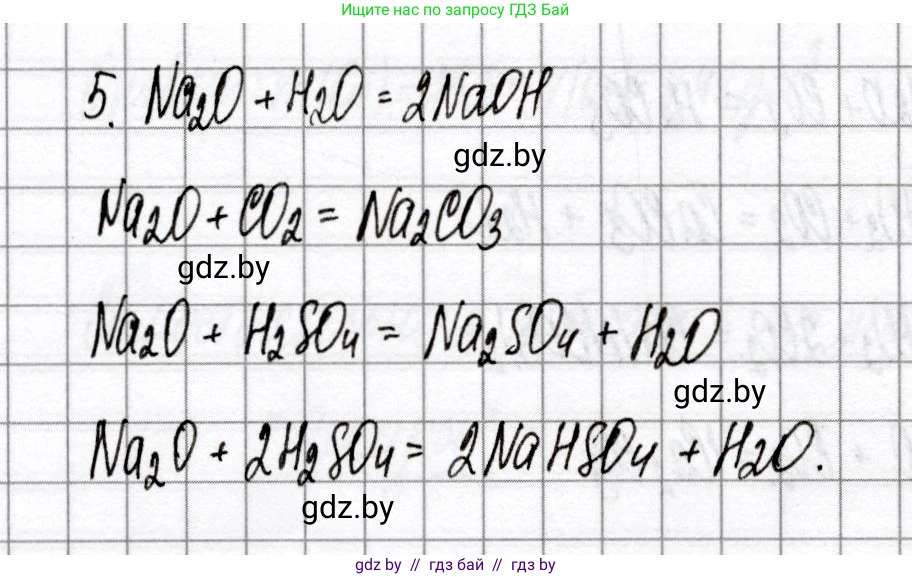 Ищите нас по запросу ГДЗ Бай
5. Na₂O + H₂O = 2NaOH
gdz.by
Na₂O + CO₂ = Na₂CO₃
gdz.by
Na₂O + H₂SO₄ = Na₂SO₄ + H₂O
gdz.by
Na₂O + 2H₂SO₄ = 2NaHSO₄ + H₂O.
gdz.by
gdz by // гдз бай // гдз by